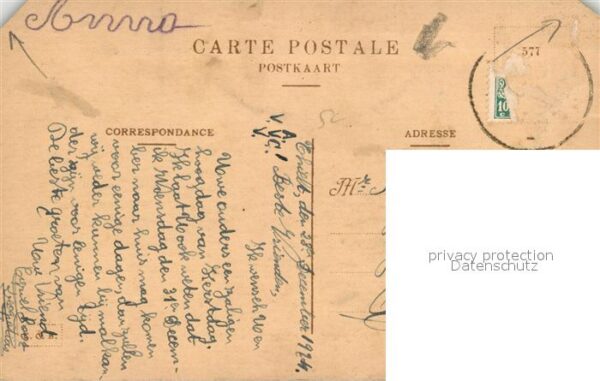 CARTE POSTALE
POSTKAART
577
10
CORRESPONDANCE
ADRESSE
den 28 December 1924.
Beste Vrienden,
Ik wensch U en
Uwe ouders een zaligen
hoogdag van Kerstdag.
Ik laat U ook weten dat
ik Woensdag den 31ste Decem-
ber naar huis mag komen
voor eenige dagen, dan zullen
wij weder kunnen bij malkan-
der zijn voor eenigen tijd.
De beste groeten van
Uwe Vriend
Mr
privacy protection
Datenschutz